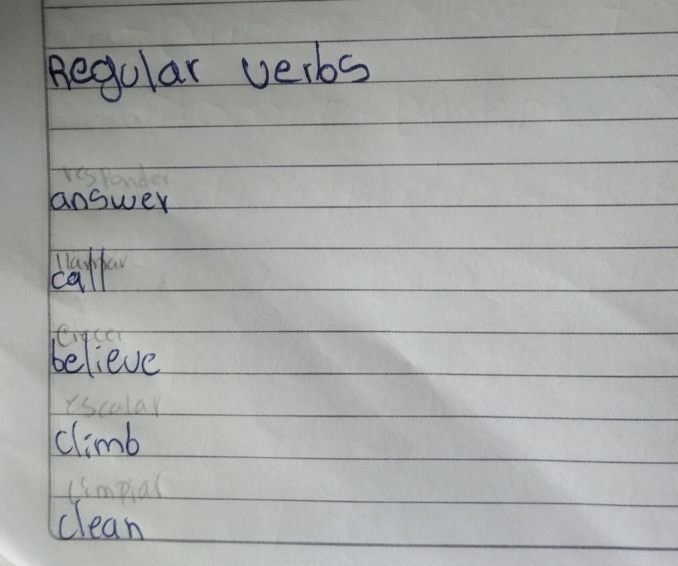 Regular verbs
responder
answer
llamar
call
believe
escalar
climb
limpiar
clean